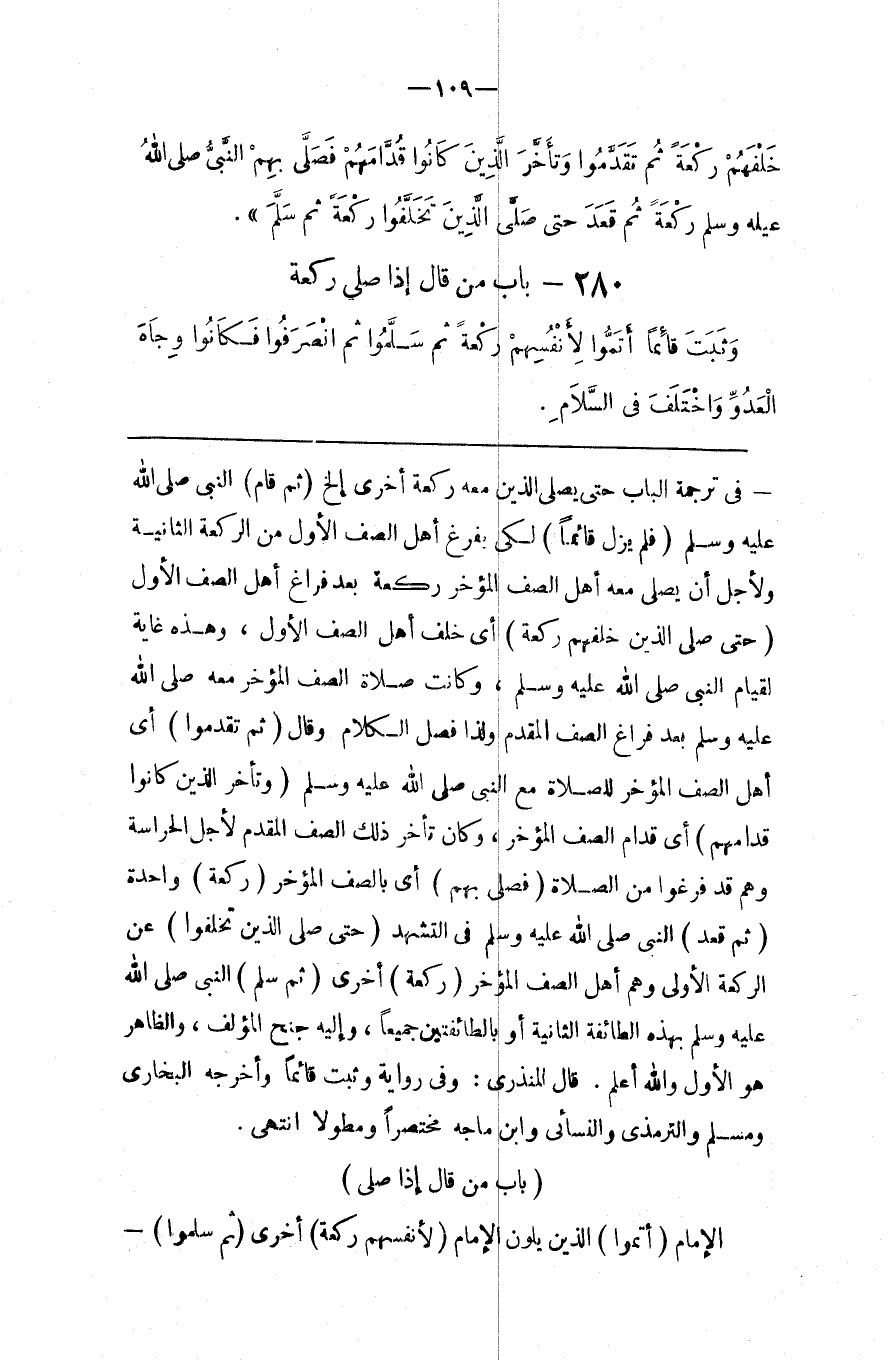 —١٠٩—
خَلْفَهُمْ رَكْعَةً ثُم تَقَدَّمُوا وَتَأَخَّرَ الَّذِينَ كَانُوا قُدَّامَهُمْ فَصَلَّى بِهِمْ النَّبِيُّ صلى اللهُ
عيله وسلم رَكْعَةً ثُم قَعَدَ حتى صَلَّى الَّذِينَ تَخَلَّفُوا رَكْعَةً ثم سَلَّمَ » .
٢٨٠ – باب من قال إذا صلى ركعة
وَثَبَتَ قَائِمًا أَتَمُّوا لِأَنْفُسِهِمْ رَكْعَةً ثم سَـلَّمُوا ثم انْصَرَفُوا فَـكَانُوا وِجَاهَ
الْعَدُوِّ وَاخْتَلَفَ فى السَّلاَمِ .
– فى ترجمة الباب حتى يصلى الذين معه ركعة أخرى إلخ (ثم قام) النبى صلى الله
عليه وسـلم ( فلم يزل قائماً ) لـكى يفرغ أهل الصف الأول من الركعة الثانيـة
ولأجل أن يصلى معه أهل الصف المؤخر ركـعة بعد فراغ أهل الصف الأول
( حتى صلى الذين خلفهم ركعة ) أى خلف أهل الصف الأول ، وهـذه غاية
لقيام النبى صلى الله عليه وسـلم ، وكانت صـلاة الصف المؤخر معه صلى الله
عليه وسلم بعد فراغ الصف المقدم ولذا فصل الـكلام وقال ( ثم تقدموا ) أى
أهل الصف المؤخر للصـلاة مع النبى صلى الله عليه وسـلم ( وتأخر الذين كانوا
قدامهم ) أى قدام الصف المؤخر ، وكان تأخر ذلك الصف المقدم لأجل الحراسة
وهم قد فرغوا من الصـلاة ( فصلى بهم ) أى بالصف المؤخر ( ركعة ) واحدة
( ثم قعد ) النبى صلى الله عليه وسلم فى التشهد ( حتى صلى الذين تخلفوا ) عن
الركعة الأولى وهم أهل الصف المؤخر ( ركعة ) أخرى ( ثم سلم ) النبى صلى الله
عليه وسلم بهذه الطائفة الثانية أو بالطائفتين جميعاً ، وإليه جنح المؤلف ، والظاهر
هو الأول والله أعلم . قال المنذرى : وفى رواية وثبت قائماً وأخرجه البخارى
ومسـلم والترمذى والنسائى وابن ماجه مختصراً ومطولا انتهى .
( باب من قال إذا صلى )
الإمام ( أتموا ) الذين يلون الإمام ( لأنفسهم ركعة) أخرى (ثم سلموا) –